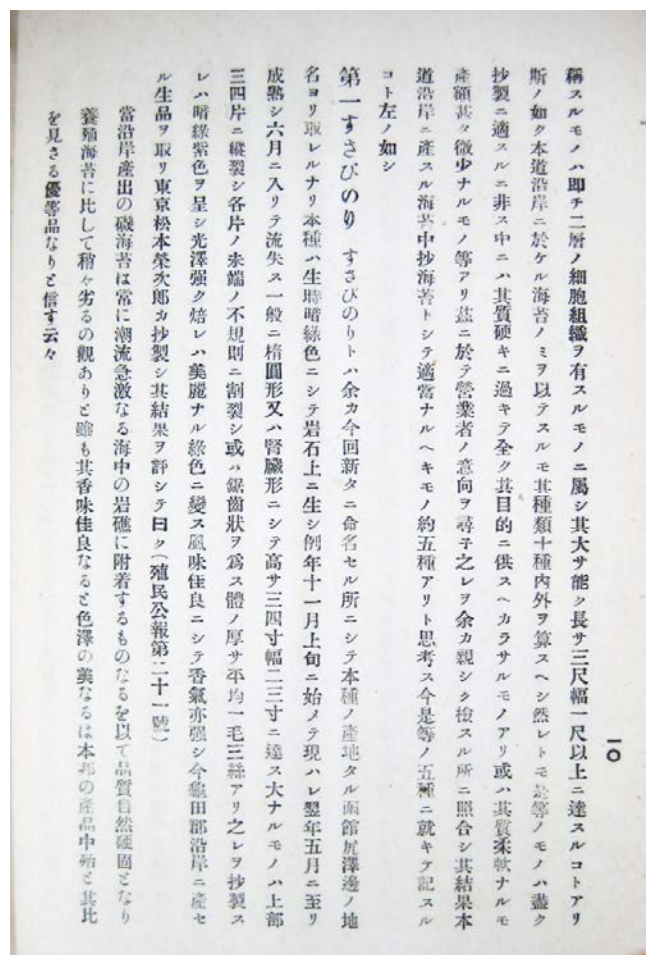 稱スルモノハ即チ二層ノ細胞組織ヲ有スルモノニ屬シ其大サ能ク長サ三尺幅一尺以上ニ達スルコトアリ
斯ノ如ク本道沿岸ニ於ケル海苔ノミヲ以テスルモ其種類十種內外ヲ算スヘシ然レトモ是等ノモノハ盡ク
抄製ニ適スルニ非ス中ニハ其質硬キニ過キテ全ク其目的ニ供スヘカラサルモノアリ或ハ其質柔軟ナルモ
產額甚タ微少ナルモノ等アリ茲ニ於テ營業者ノ意向ヲ尋子之レヲ余カ親シク檢スル所ニ照合シ其結果本
道沿岸ニ產スル海苔中抄海苔トシテ適當ナルヘキモノ約五種アリト思考ス今是等ノ五種ニ就キテ記スル
コト左ノ如シ
第一すさびのり すさびのりトハ余カ今回新タニ命名セル所ニシテ本種ノ產地タル函館尻澤邊ノ地
名ヨリ取レルナリ本種ハ生時暗綠色ニシテ岩石上ニ生シ例年十一月上旬ニ始メテ現ハレ翌年五月ニ至リ
成熟シ六月ニ入リテ流失ス一般ニ楕圓形又ハ腎臟形ニシテ高サ三四寸幅二三寸ニ達ス大ナルモノハ上部
三四片ニ縱裂シ各片ノ末端ノ不規則ニ割裂シ或ハ鋸齒狀ヲ爲ス體ノ厚サ平均一毛三絲アリ之レヲ抄製ス
レハ暗綠紫色ヲ呈シ光澤强ク焙レハ美麗ナル綠色ニ變ス風味佳良ニシテ香氣亦强シ今龜田郡沿岸ニ產セ
ル生品ヲ取リ東京松本榮次郎カ抄製シ其結果ヲ評シテ曰ク(殖民公報第二十一號)
當沿岸產出の磯海苔は常に潮流急激なる海中の岩礁に附着するものなるを以て品質自然硬固となり
養殖海苔に比して稍々劣るの觀ありと雖も其香味佳良なると色澤の美なるは本邦の產品中殆と其比
を見さる優等品なりと信す云々
一〇